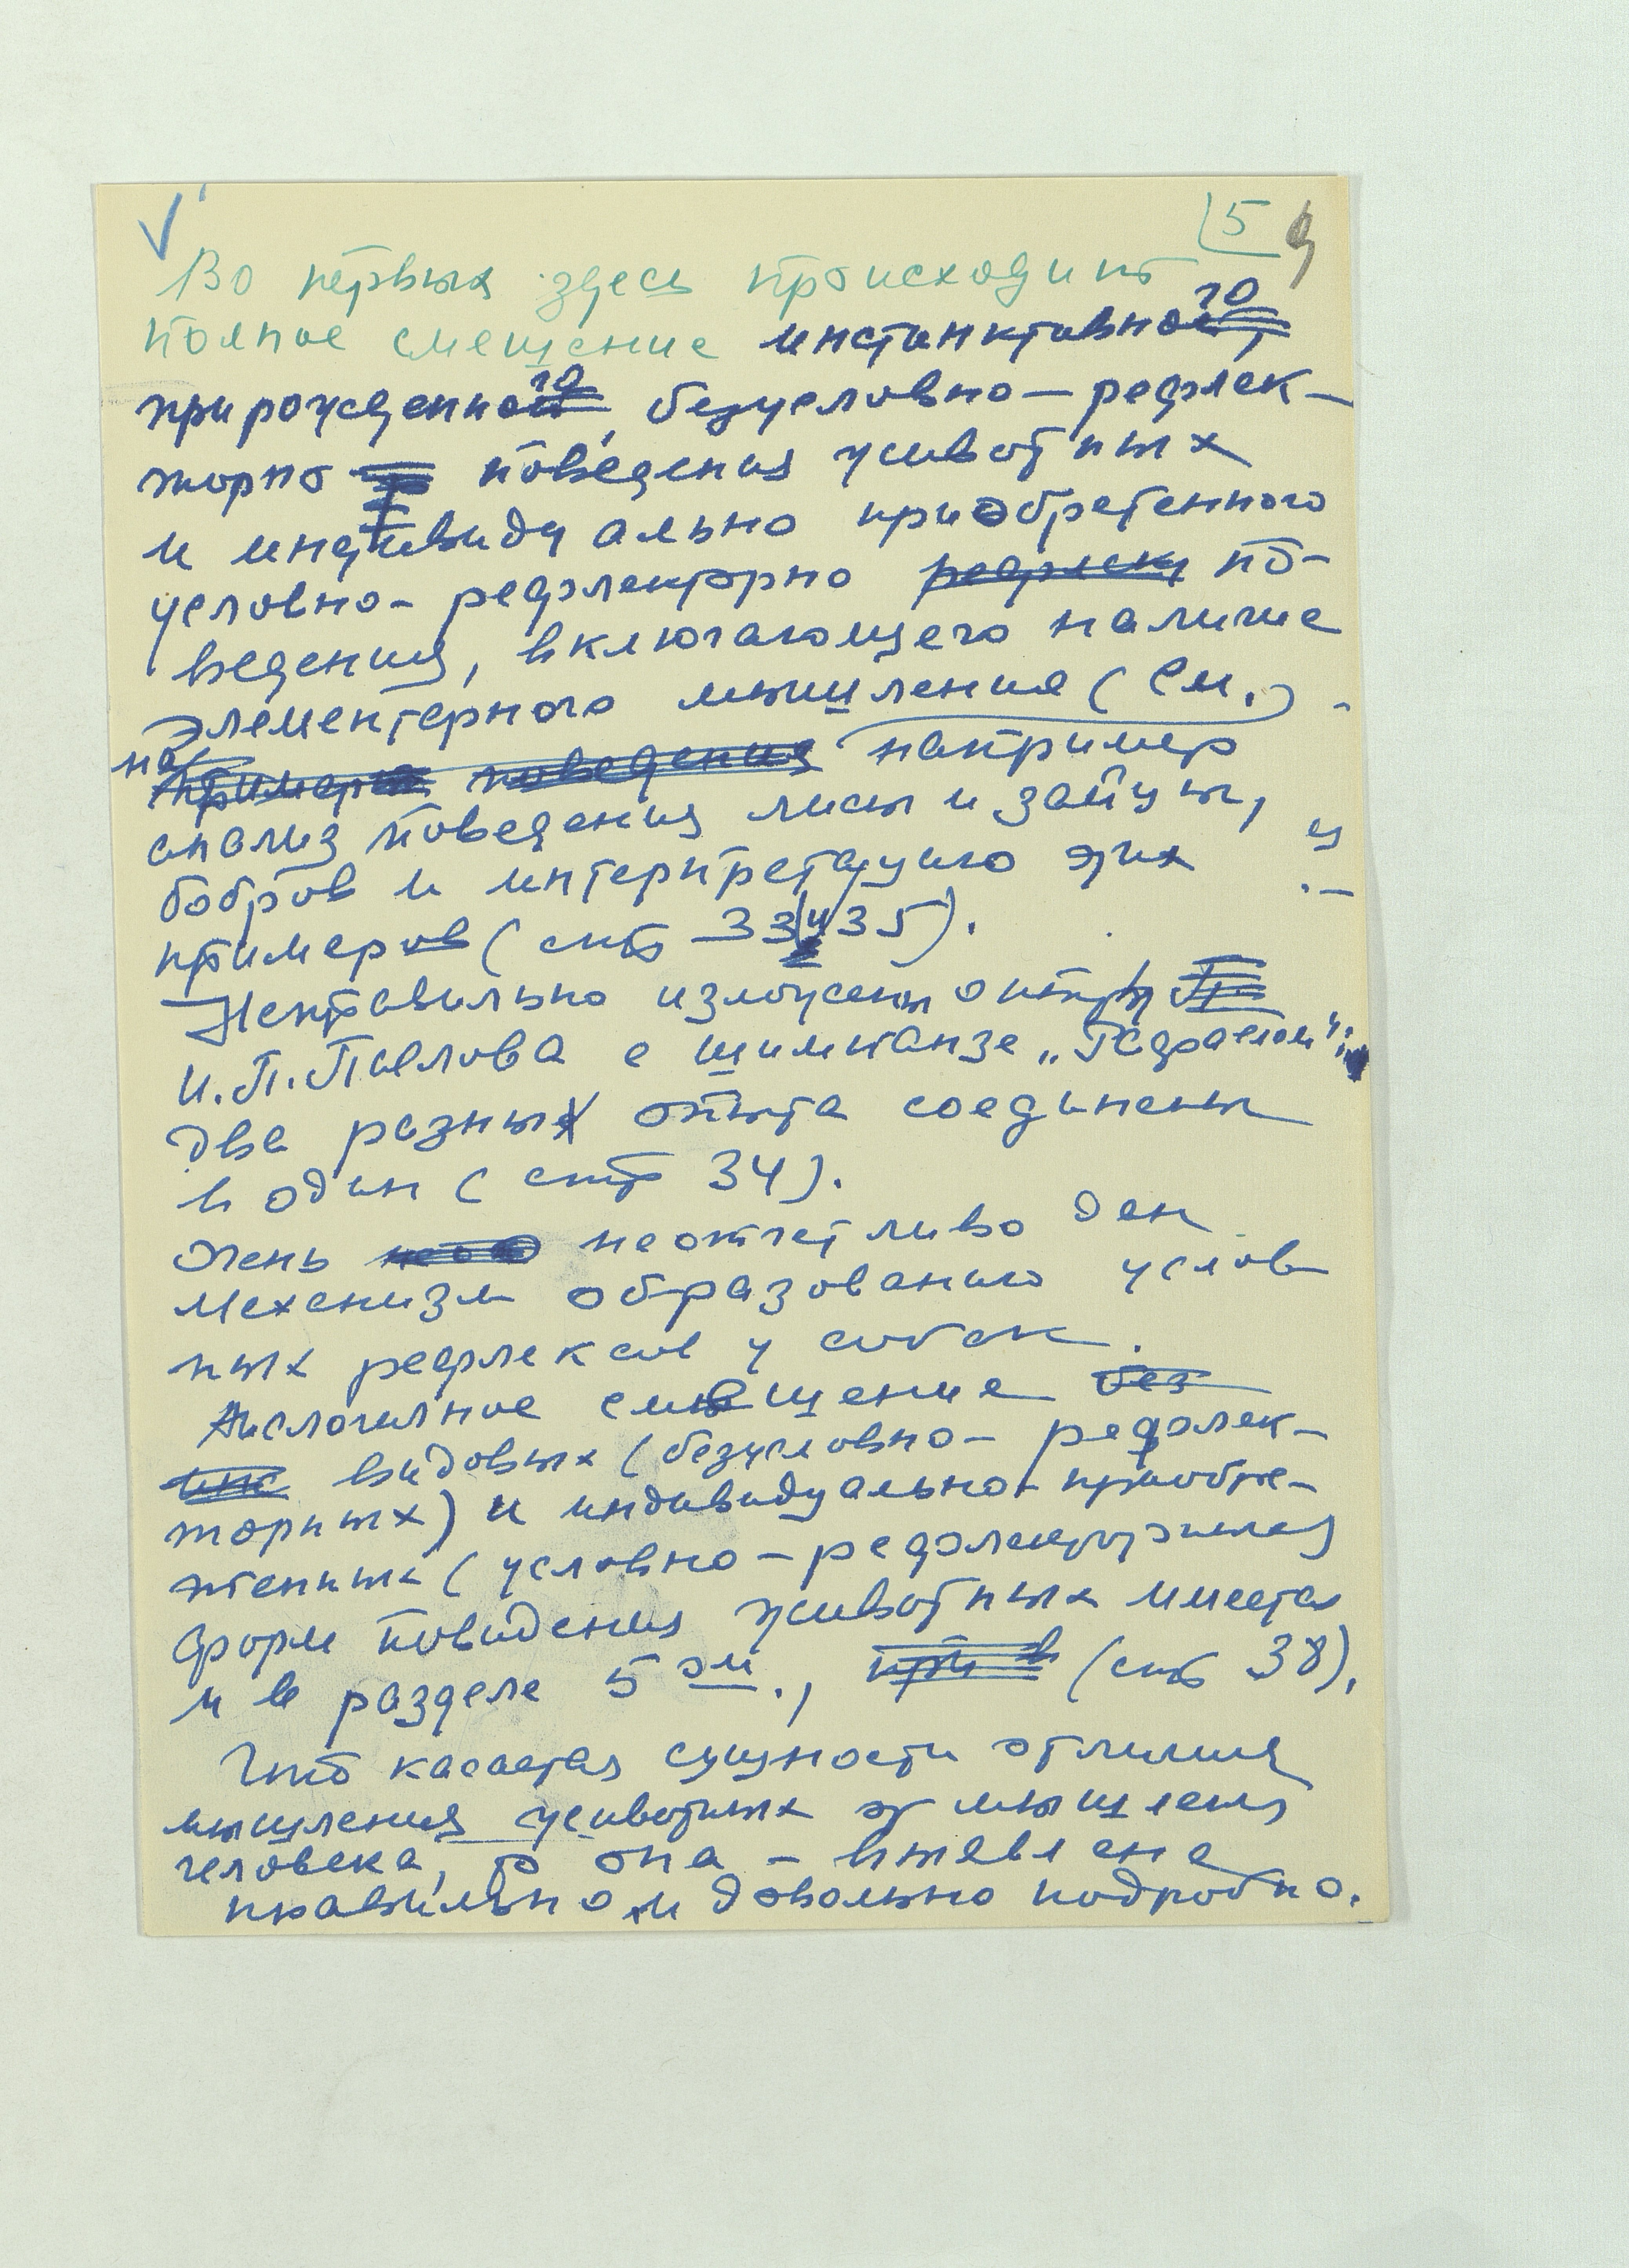 5 9
Во первых здесь происходит
полное смешение инстинктивного,
прирожденного, безусловно-рефлек-
торно поведения животных
и индивидуально приобретенного
условно-рефлекторно рефлек по-
ведения, включающего наличие
элементарного мышления (См.)
на
примере поведения например
анализ поведения лисы и зайцы,
бобров и интерпретацию этих
примеров (стр 33 и 35).
Неправильно изложены опыты
И.П. Павлова с шимпанзе „Рафаелом":
два разных опыта соединены
в один (стр 34).
Очень нео неотчетливо дан
механизм образованию услов
ных рефлексов у собак.
Аналогичное смешение без
инс видовых (безусловно-рефлек-
торных) и индивидуально-приобре-
тенных (условно-рефлекторных
форм поведения животных имеется
и в разделе 5ом., при в (стр 38).
Что касается сущности отличия
мышления животных от мышления
человека, то она - выявлена
правильно и довольно подробно.